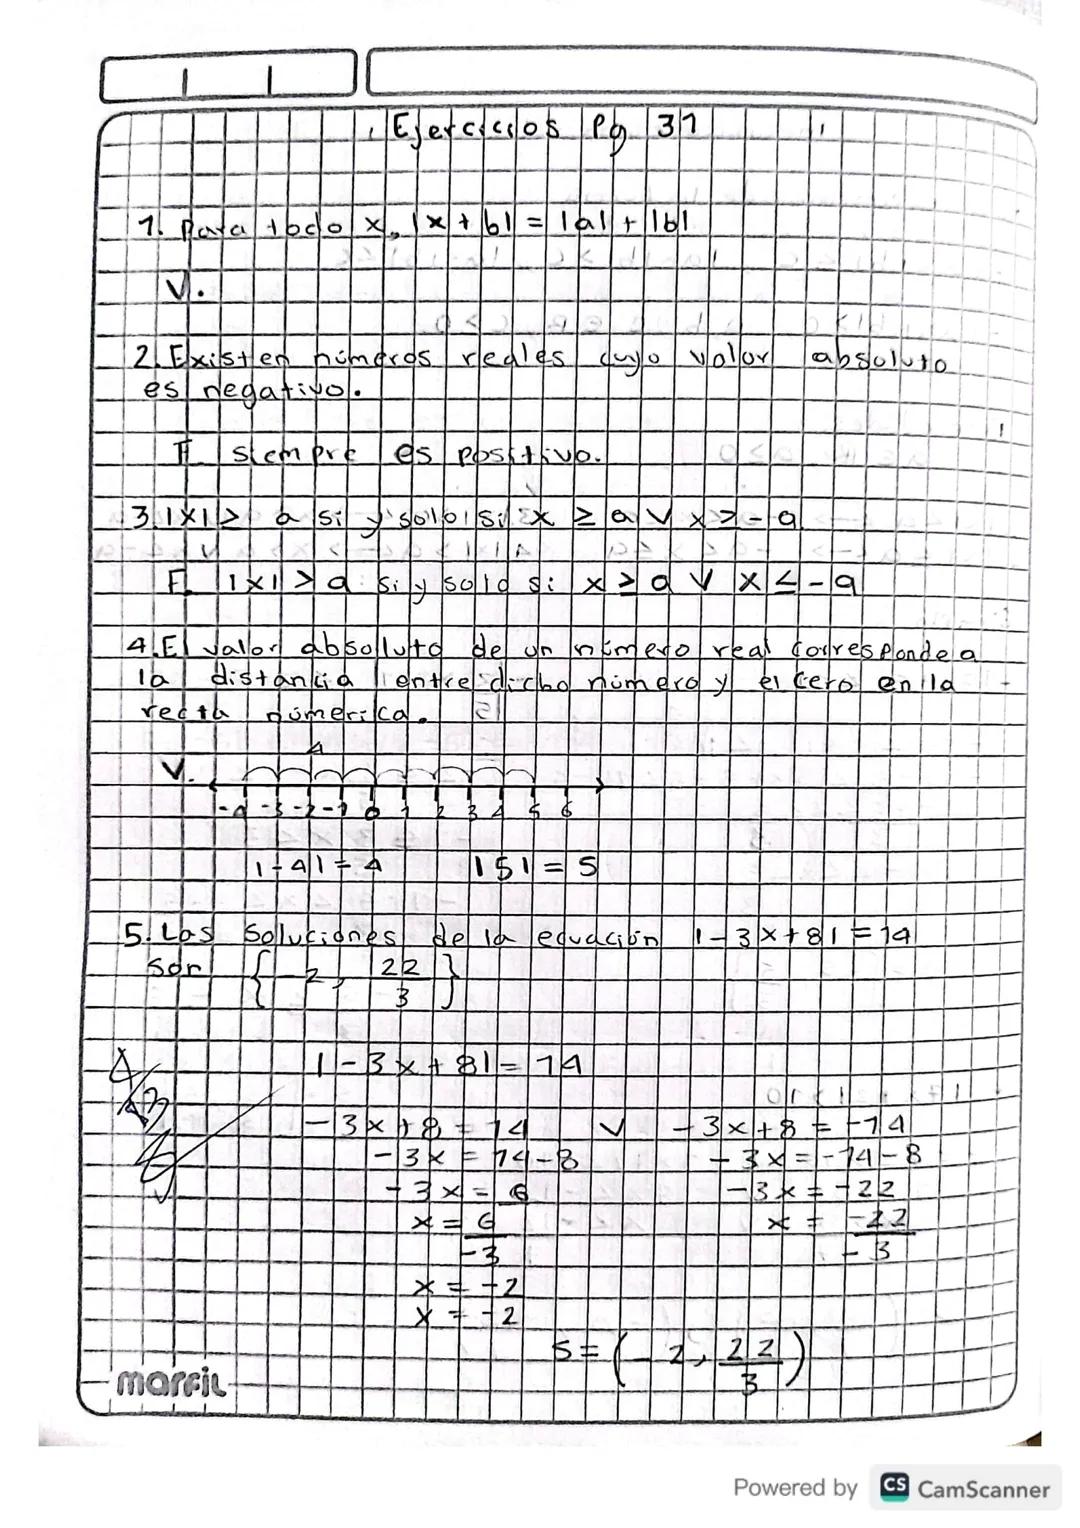 Ejercicios Pg 31
1. Para todo x, |x + b| = |a| + |b|
V.
2. Existen números reales cuyo valor absoluto
es negativo.
F siempre es positivo.
3. |x| ≥ a si y solo si x ≥ a ∨ x ≥ -a
F. |x| > a si y solo si x ≥ a ∨ x ≤ -a
4. El valor absoluto de un número real corresponde a
la distancia entre dicho número y el cero en la
recta númerica.
4
V.
-4 -3 -2 -1 0 1 2 3 4 5 6
|-4| = 4 |5| = 5
5. Las soluciones de la ecuación |-3x+8| = 14
son {-2, 22/3}
|-3x+8| = 14
-3x+8 = 14 ∨ -3x+8 = -14
-3x = 14-8 -3x = -14-8
-3x = 6 -3x = -22
x = 6/-3 x = -22/-3
x = -2
x = -2
S = (-2, 22/3)
marfil
Powered by CS CamScanner